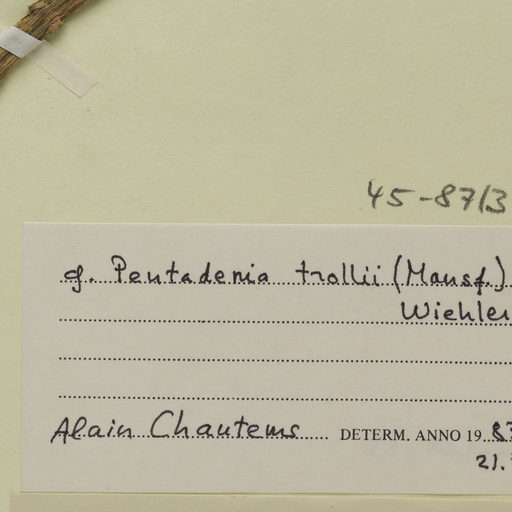 45-87/3
cf. Pentadenia trollii (Mansf.)
Wiehler
Alain Chautems DETERM. ANNO 19 87
21.